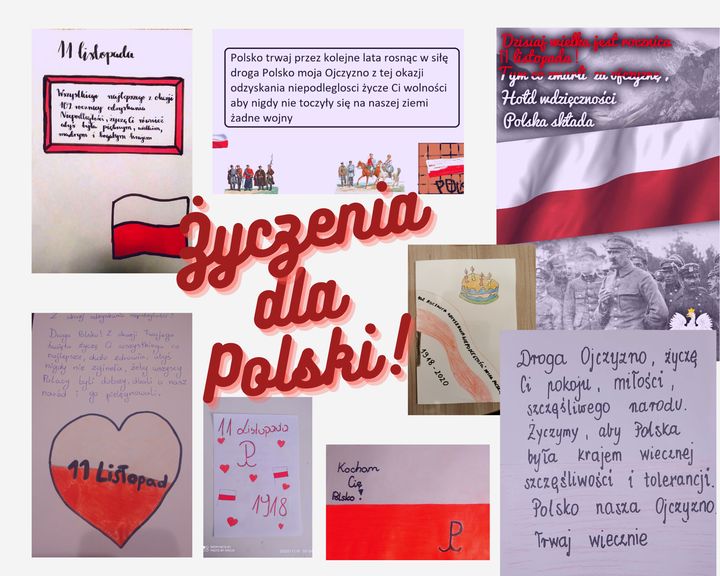 11 listopada
Wszystkiego najlepszego z okazji
102 rocznicy odzyskania
Niepodległości, życzę Ci również
abyś była pięknym, wielkim,
mądrym i bogatym krajem
Polsko trwaj przez kolejne lata rosnąc w siłę
droga Polsko moja Ojczyzno z tej okazji
odzyskania niepodleglosci życze Ci wolności
aby nigdy nie toczyły się na naszej ziemi
żadne wojny
Dzisiaj wielka jest rocznica
11 listopada!
Tym co zmarli za ojczyznę,
Hołd wdzięczności
Polska składa
Życzenia
dla
Polski!
1918-2020
Z okazji odzyskania niepodległości
Droga Polsko! Z okazji Twojego
święta życzę Ci wszystkiego co
najlepsze, dużo zdrowia, abyś
nigdy nie zginęła, żeby wszyscy
Polacy byli dobrzy, dbali o nasz
naród i go pielęgnowali.
11 Listopad
11 Listopada
1918
Kocham
Cię
Polsko!
Droga Ojczyzno, życzę
Ci pokoju, miłości,
szczęśliwego narodu.
Życzymy, aby Polska
była krajem wiecznej
szczęśliwości i tolerancji.
Polsko nasza Ojczyzno
Trwaj wiecznie